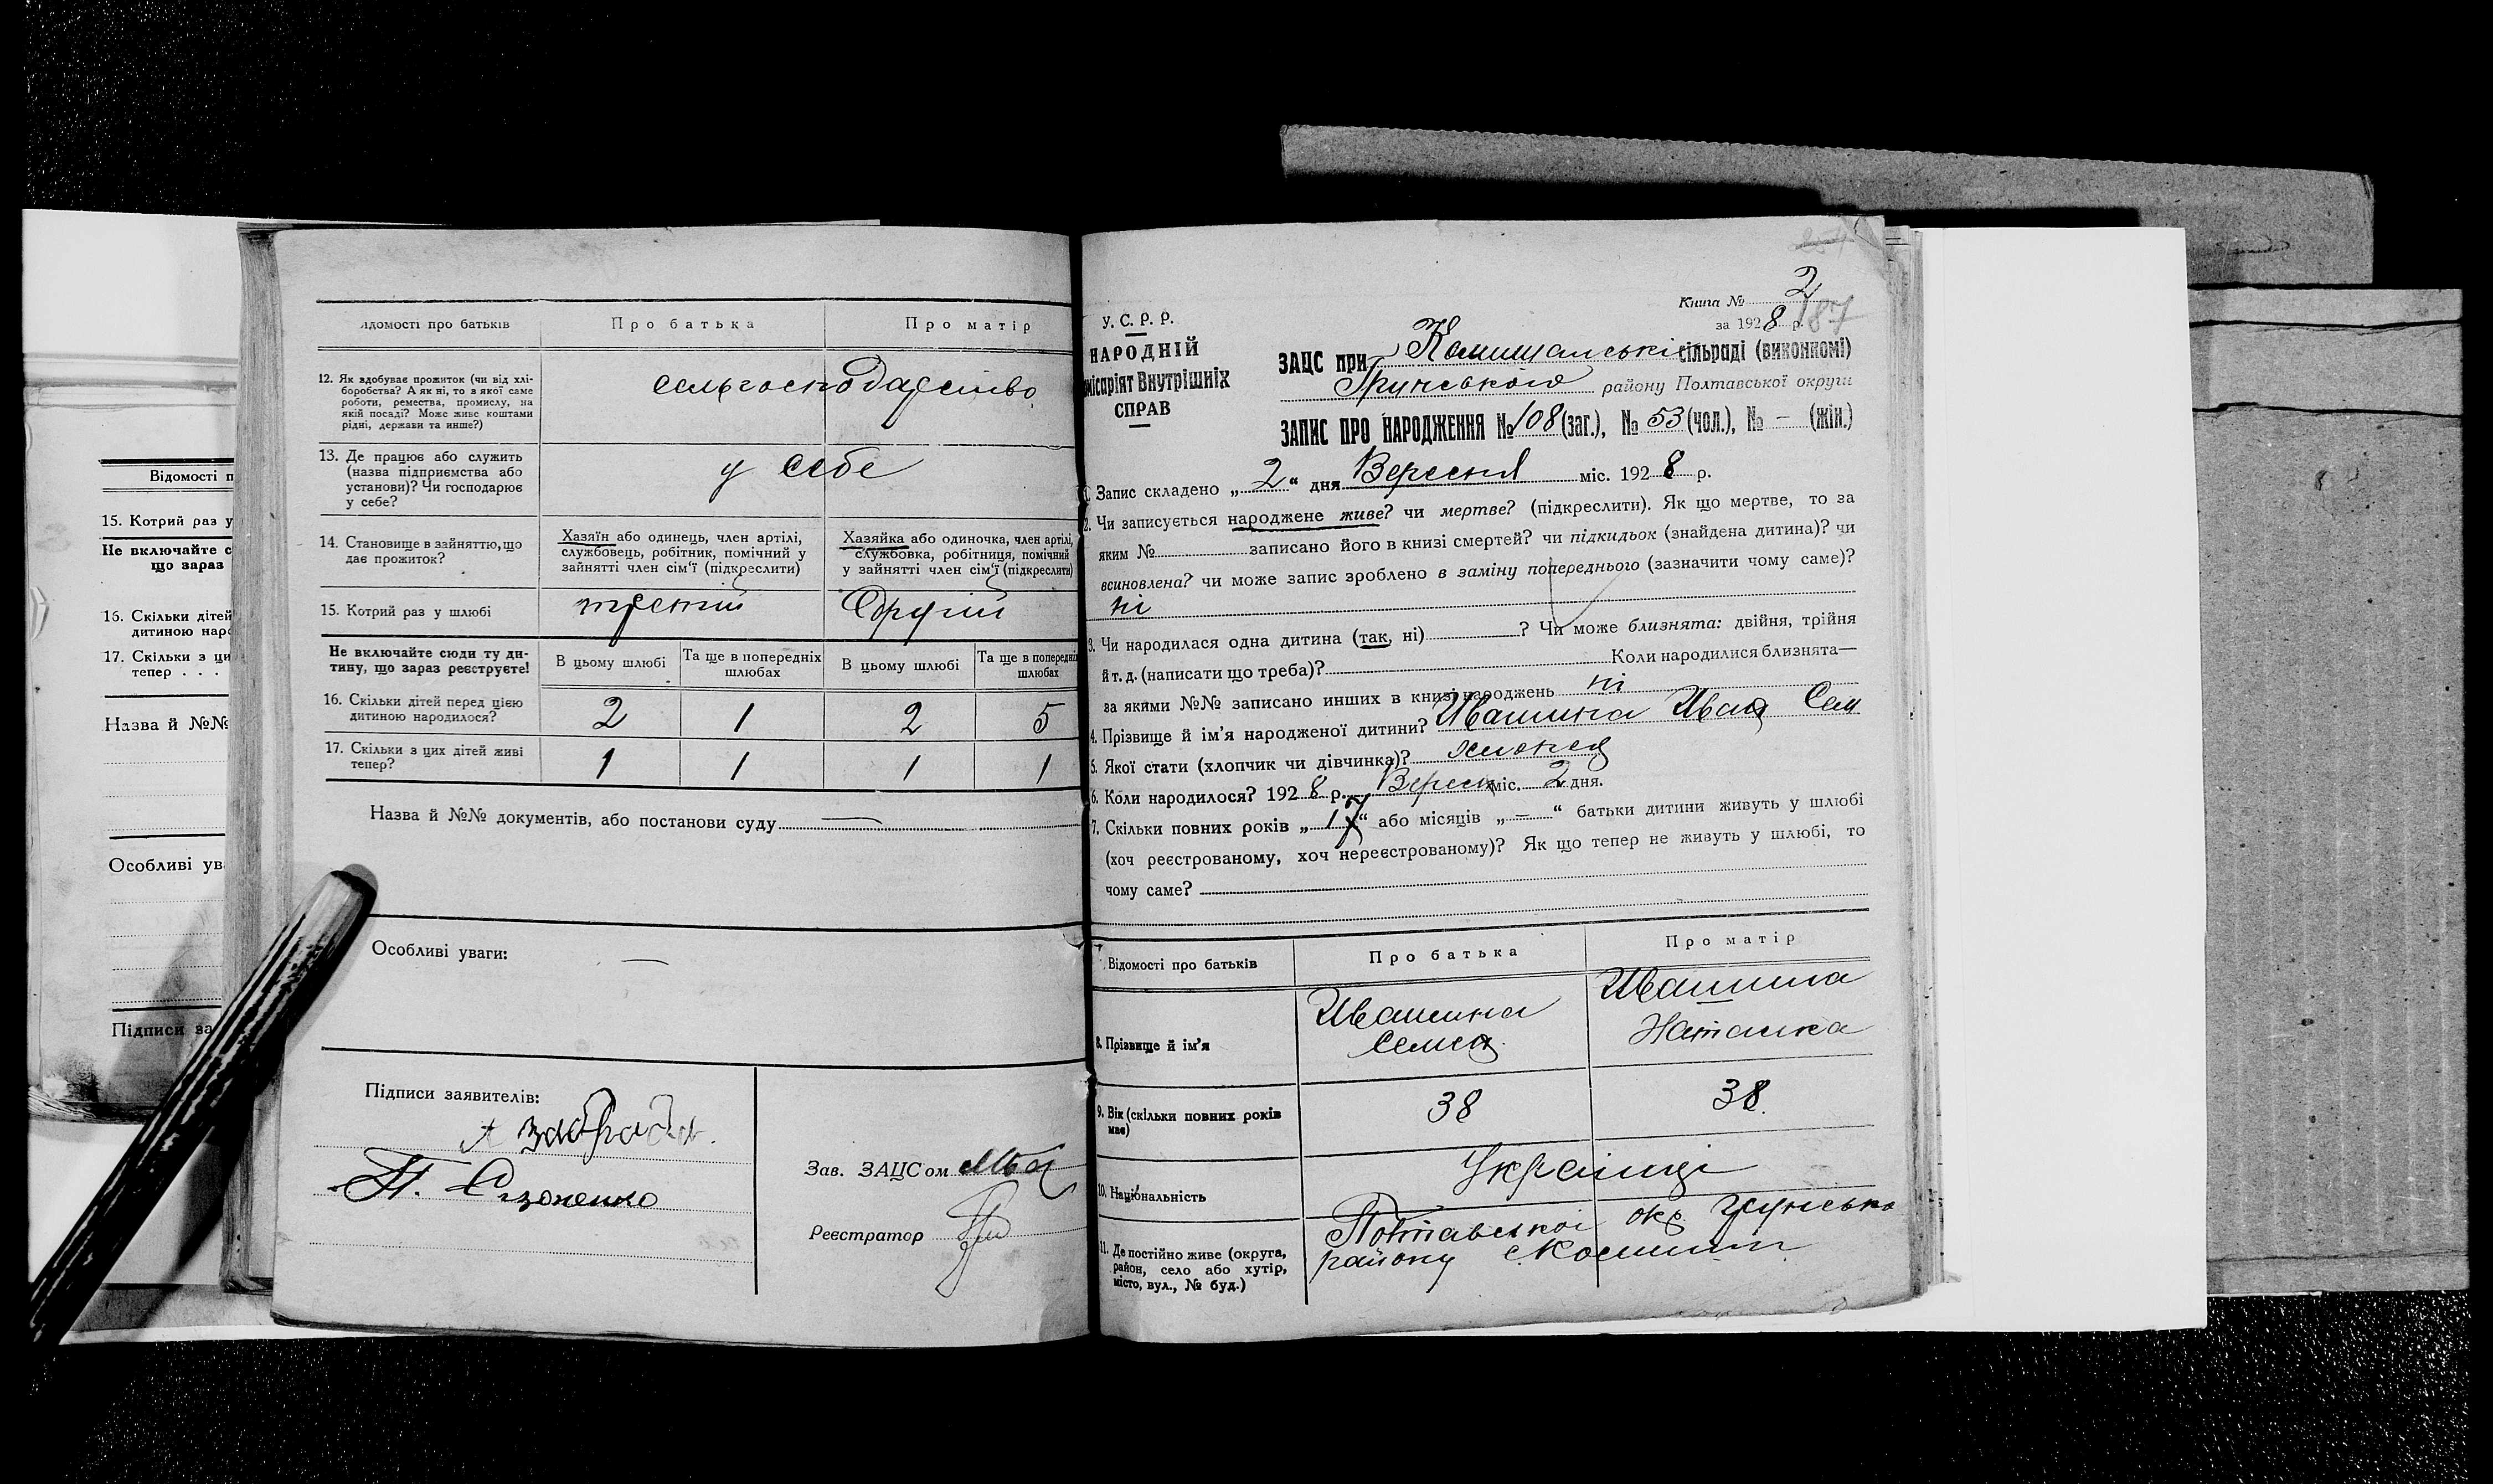 Відомості п
15. Котрий раз у
Не включайте с
що зараз
16. Скільки дітей
дитиною наро
17. Скільки з ци
тепер . . .
Назва й №№
Особливі ув
Підписи за
ідомості про батьків Про батька Про матір
12. Як здобуває прожиток (чи від хлі-
боробства? А як ні, то в якої саме
роботи, ремества, промислу, на
якій посаді? Може живе коштами
рідні, держави та инше?)
сельгосподарство
13. Де працює або служить
(назва підприємства або
установи)? Чи господарює
у себе?
у себе
14. Становище в зайняттю, що
дає прожиток?
Хазяїн або одинець, член артілі,
службовець, робітник, помічний у
зайнятті член сім'ї (підкреслити)
Хазяйка або одиночка, член артілі,
службовка, робітниця, помічний
у зайнятті член сім'ї (підкреслити)
15. Котрий раз у шлюбі третій Другій
Не включайте сюди ту ди-
тину, що зараз реєструєте!
В цьому шлюбі Та ще в попередніх шлюбах В цьому шлюбі Та ще в попередніх шлюбах
16. Скільки дітей перед цією
дитиною народилося?
2 1 2 5
17. Скільки з цих дітей живі
тепер?
1 1 1 1
Назва й №№ документів, або постанови суду —
Особливі уваги: —
Підписи заявителів:
П. Сизоненко
Зав. ЗАЦСом
Реєстратор
Книга № 2
за 1928 р.
187
У. С. Р. Р.
НАРОДНІЙ
місаріят Внутрішніх
СПРАВ
ЗАЦС при Комишанській сільраді (виконкомі)
Грунського району Полтавської округи
ЗАПИС ПРО НАРОДЖЕННЯ № 108 (заг.), № 53 (чол.), № — (жін.)
1. Запис складено „ 2 “ дня Вересня міс. 1928 р.
2. Чи записується народжене живе? чи мертве? (підкреслити). Як що мертве, то за
яким № записано його в книзі смертей? чи підкидьок (знайдена дитина)? чи
всиновлена? чи може запис зроблено в заміну попереднього (зазначити чому саме)?
ні
3. Чи народилася одна дитина (так, ні) ? Чи може близнята: двійня, трійня
й т. д. (написати що треба)? Коли народилися близнята—
за якими №№ записано инших в книзі народжень ні
4. Прізвище й ім'я народженої дитини? Ивашина Иван Сем
5. Якої стати (хлопчик чи дівчинка)?
6. Коли народилося? 1928 р. Вересн міс. 2 дня.
7. Скільки повних років „ 17 “ або місяців „ — “ батьки дитини живуть у шлюбі
(хоч реєстрованому, хоч нереєстрованому)? Як що тепер не живуть у шлюбі, то
чому саме?
Відомості про батьків Про батька Про матір
8. Прізвище й ім'я
Ивашина
Семен
Ивашина
Наталка
9. Вік (скільки повних років
має)
38 38
10. Національність Українці
11. Де постійно живе (округа,
район, село або хутір,
місто, вул., № буд.)
Полтавської окр. Грунсько
району